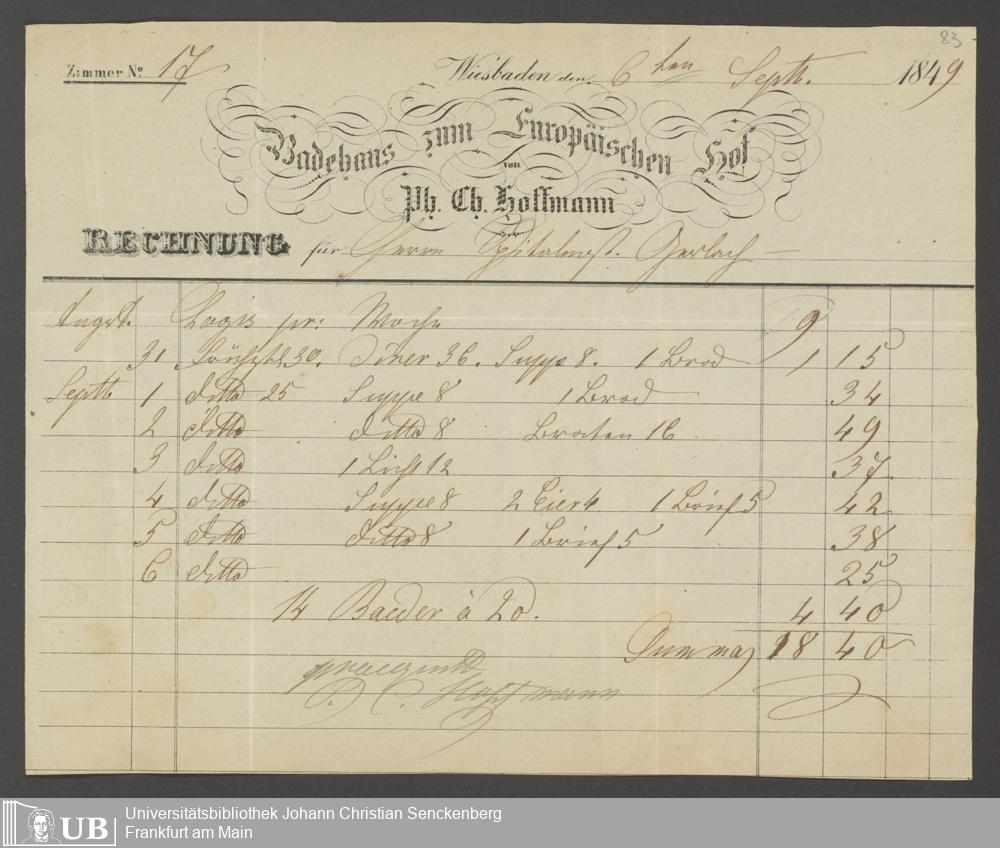 83
Zimmer No. 17 Wiesbaden den 6ten Septb. 1849
Badehaus zum Europäischen Hof
von
Ph. Ch. Hoffmann
RECHNUNG für Herrn Spitalmst. Gerlach
August. Logis pr: Woche 9
31 Frühst. 30. Diner 36. Suppe 8. 1 Brod 1 15
Septb. 1 ditto 25 Suppe 8 1 Brod 34
2 ditto ditto 8 Braten 16 49
3 ditto 1 Licht 12 37
4 ditto Suppe 8 2 Eier 4 1 Brief 5 42
5 ditto ditto 8 1 Brief 5 38
6 ditto 25
14 Baeder à 20. 4 40
Summa 18 40
P. C. Hoffmann
UB Universitätsbibliothek Johann Christian Senckenberg
Frankfurt am Main